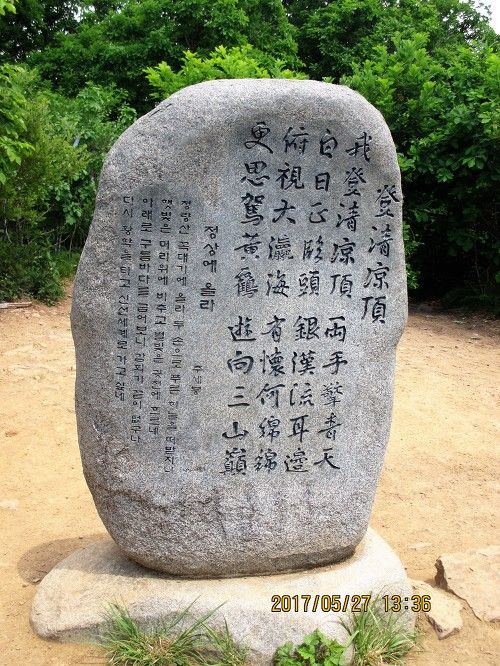 登清凉頂
我登清凉頂 兩手擎青天
白日正臨頭 銀漢流耳邊
俯視大瀛海 有懷何綿綿
更思駕黃鶴 遊向三山巓
정상에 올라
주세붕
청량산 꼭대기에 올라 두 손으로 푸른 하늘을 떠받치니
햇빛은 머리위에 비추고 별빛은 귓전에 흐르네
아래로 구름바다를 굽어보니 감회가 끝이 없구나
다시 황학을 타고 신선세계로 가고 싶네
2017/05/27 13:36